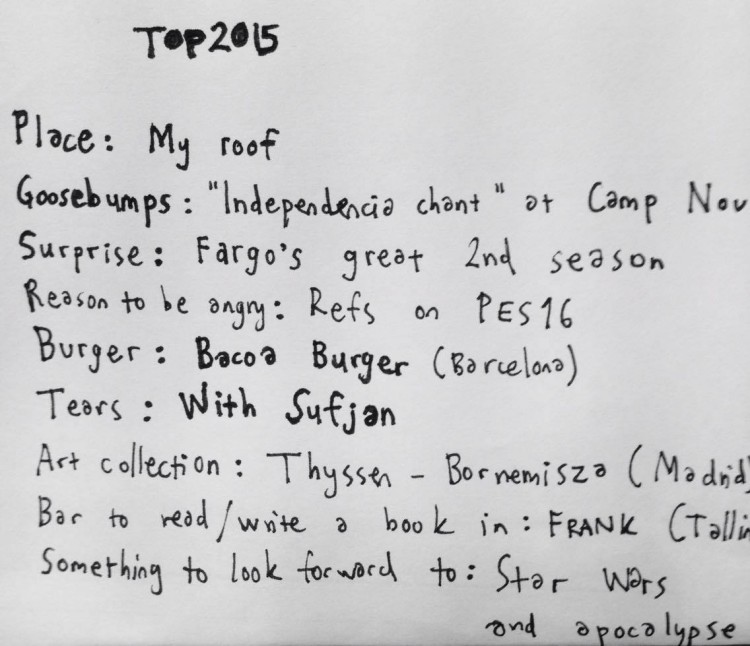 TOP2015
Place: My roof
Goosebumps: "Independencia chant" at Camp Nou
Surprise: Fargo's great 2nd season
Reason to be angry: Refs on PES16
Burger: Bacoa Burger (Barcelona)
Tears: With Sufjan
Art collection: Thyssen - Bornemisza (Madrid)
Bar to read/write a book in: FRANK (Tallin
Something to look forward to: Star Wars
and apocalypse